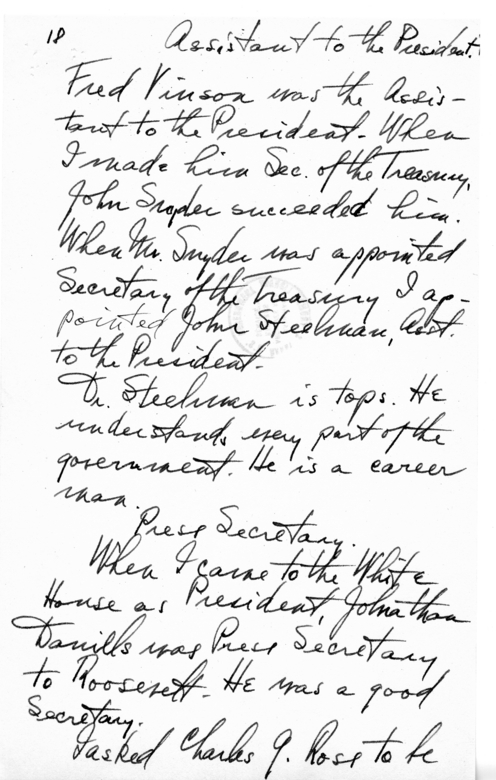 18
Assistant to the President.
Fred Vinson was the Assis-
tant to the President. When
I made him Sec. of the Treasury,
John Snyder succeeded him.
When Mr. Snyder was appointed
Secretary of the Treasury I ap-
pointed John Steelman, Asst.
to the President.
Dr. Steelman is tops. He
understands every part of the
government. He is a career
man.
Press Secretary.
When I came to the White
House as President, Johnathan
Daniells was Press Secretary
to Roosevelt. He was a good
Secretary.
I asked Charles G. Ross to be